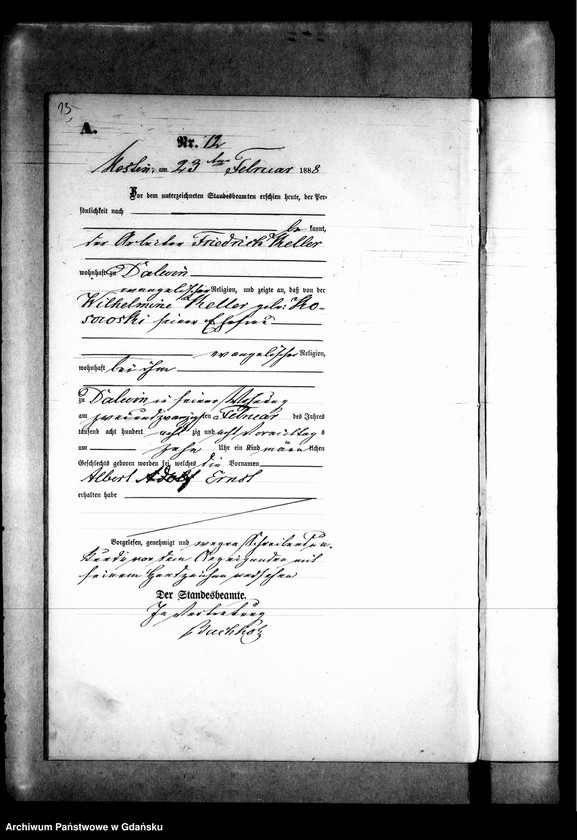 15.
A.
Nr. 12
am 23 ten Februar 1888
Vor dem unterzeichneten Standesbeamten erschien heute, der Per-
sönlichkeit nach
be kannt,
der Arbeiter Friedrich Keller
wohnhaft zu Dalwin
evangelischer Religion, und zeigte an, daß von der
Wilhelmine Keller geb. Ko-
sowski seiner Ehefrau
evangelischer Religion,
wohnhaft bei ihm
zu Dalwin in seiner Wohnung
am zweiundzwanzigsten Februar des Jahres
tausend acht hundert acht zig und acht Vormittag s
um zehn Uhr ein Kind männ lichen
Geschlechts geboren worden sei, welches die Vornamen
Albert Adolf Ernst
erhalten habe
Vorgelesen, genehmigt und wegen Schreibensun-
kunde von dem Anzeigenden mit
seinem Handzeichen versehen
Der Standesbeamte.
In Vertretung
Buchholz
Archiwum Państwowe w Gdańsku